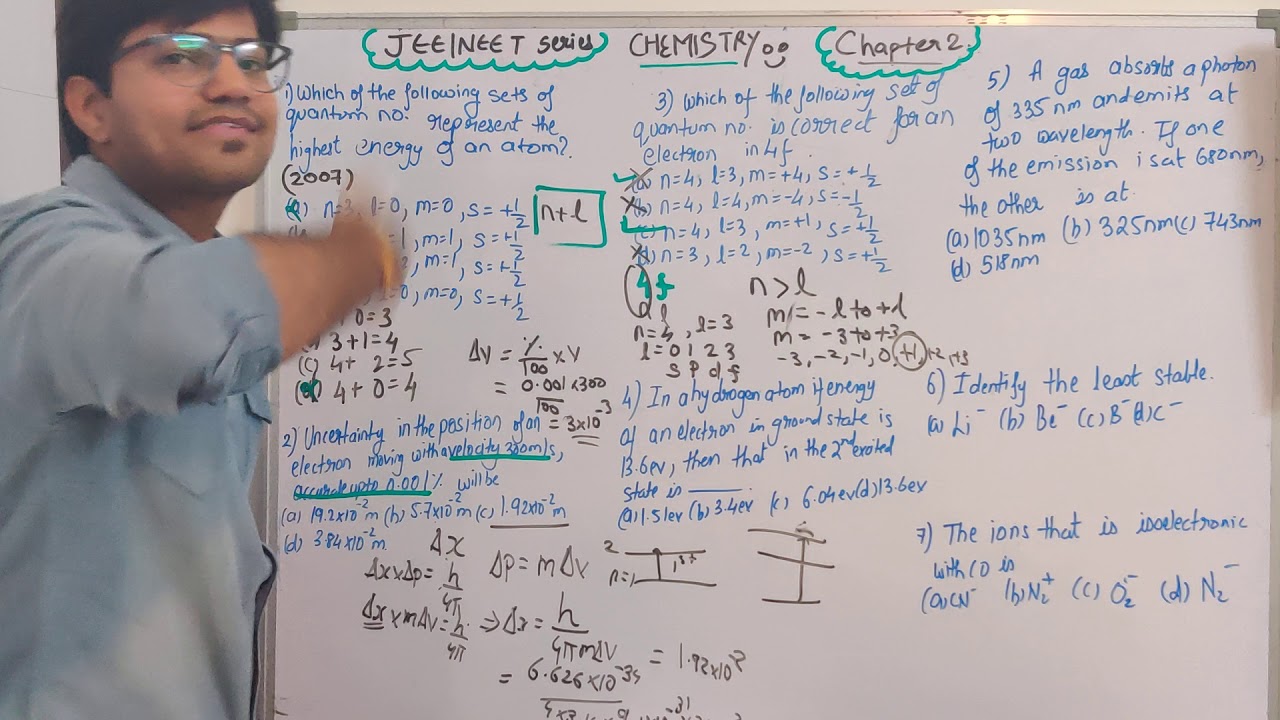 JEE|NEET series CHEMISTRY Chapter 2
1) Which of the following sets of
quantum no. represent the
highest energy of an atom?
(2007)
n=3, l=0, m=0, s=+1/2
=1, m=1, s=+1/2
m=1, s=+1/2
l=0, m=0, s=+1/2
n+l
0=3
3+1=4
(c) 4+ 2=5
(d) 4+0=4
Δv = %/100 × v
= 0.001×300/100
= 3×10⁻³
2) Uncertainty in the position of an
electron moving with a velocity 300m/s,
accurate upto 0.001% will be
(a) 19.2×10⁻²m (b) 5.7×10⁻²m (c) 1.92×10⁻²m
(d) 3.84×10⁻²m
Δx
Δx×Δp = h/4π Δp = mΔv
Δx × mΔv = h/4π ⇒ Δx = h/4πmΔv
= 6.626×10⁻³⁴ = 1.92×10⁻²
3) Which of the following set of
quantum no. is correct for an
electron in 4f
(a) n=4, l=3, m=+4, s=+1/2
(b) n=4, l=4, m=-4, s=-1/2
(c) n=4, l=3, m=+1, s=+1/2
(d) n=3, l=2, m=-2, s=+1/2
4f
n l
n=4, l=3
l=0 1 2 3
s p d f
n>l
m = -l to +l
m = -3 to +3
-3, -2, -1, 0, +1, +2 +3
4) In a hydrogen atom if energy
of an electron in ground state is
13.6ev, then that in the 2nd excited
state is ____
(a) 1.51ev (b) 3.4ev (c) 6.04ev (d) 13.6ev
2
n=1 1st
5) A gas absorbs a photon
of 335nm and emits at
two wavelength. If one
of the emission is at 680nm,
the other is at.
(a) 1035nm (b) 325nm (c) 743nm
(d) 518nm
6) Identify the least stable.
(a) Li⁻ (b) Be⁻ (c) B⁻ (d) C⁻
7) The ions that is isoelectronic
with CO is
(a) CN⁻ (b) N₂⁺ (c) O₂⁻ (d) N₂⁻